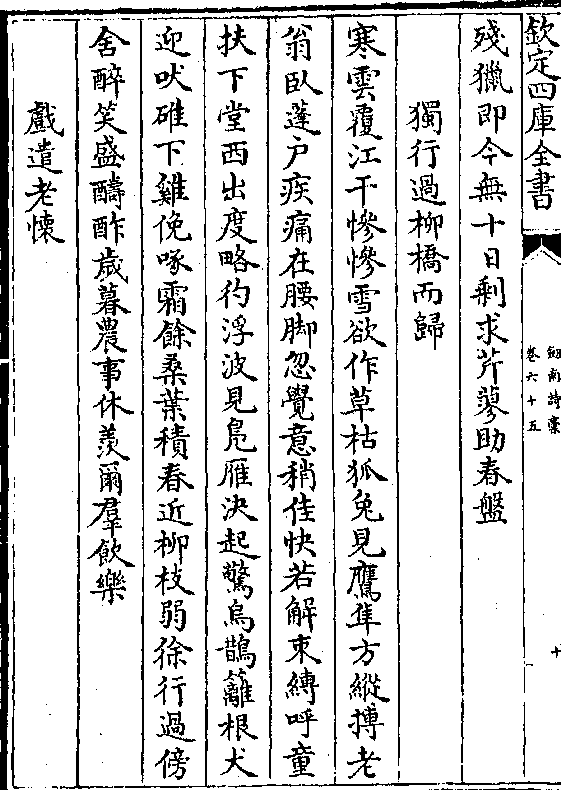 欽定四庫全書
劍南詩稾
卷六十五
十
殘獵即今無十日剩求芹蓼助春盤
獨行過柳橋而歸
寒雲覆江干慘慘雪欲作草枯狐兔見鷹隼方縱搏老
翁臥蓬戶疾痛在腰脚忽覺意稍佳快若解束縛呼童
扶下堂西出度略彴浮波見鳬雁決起驚烏鵲籬根犬
迎吠碓下雞俛啄霜餘桑葉積春近柳枝弱徐行過傍
舍醉笑盛醻酢歳暮農事休羨爾羣飲樂
戲遣老懷